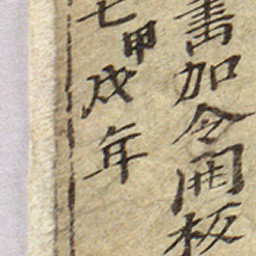 書加今開板
七甲戌年